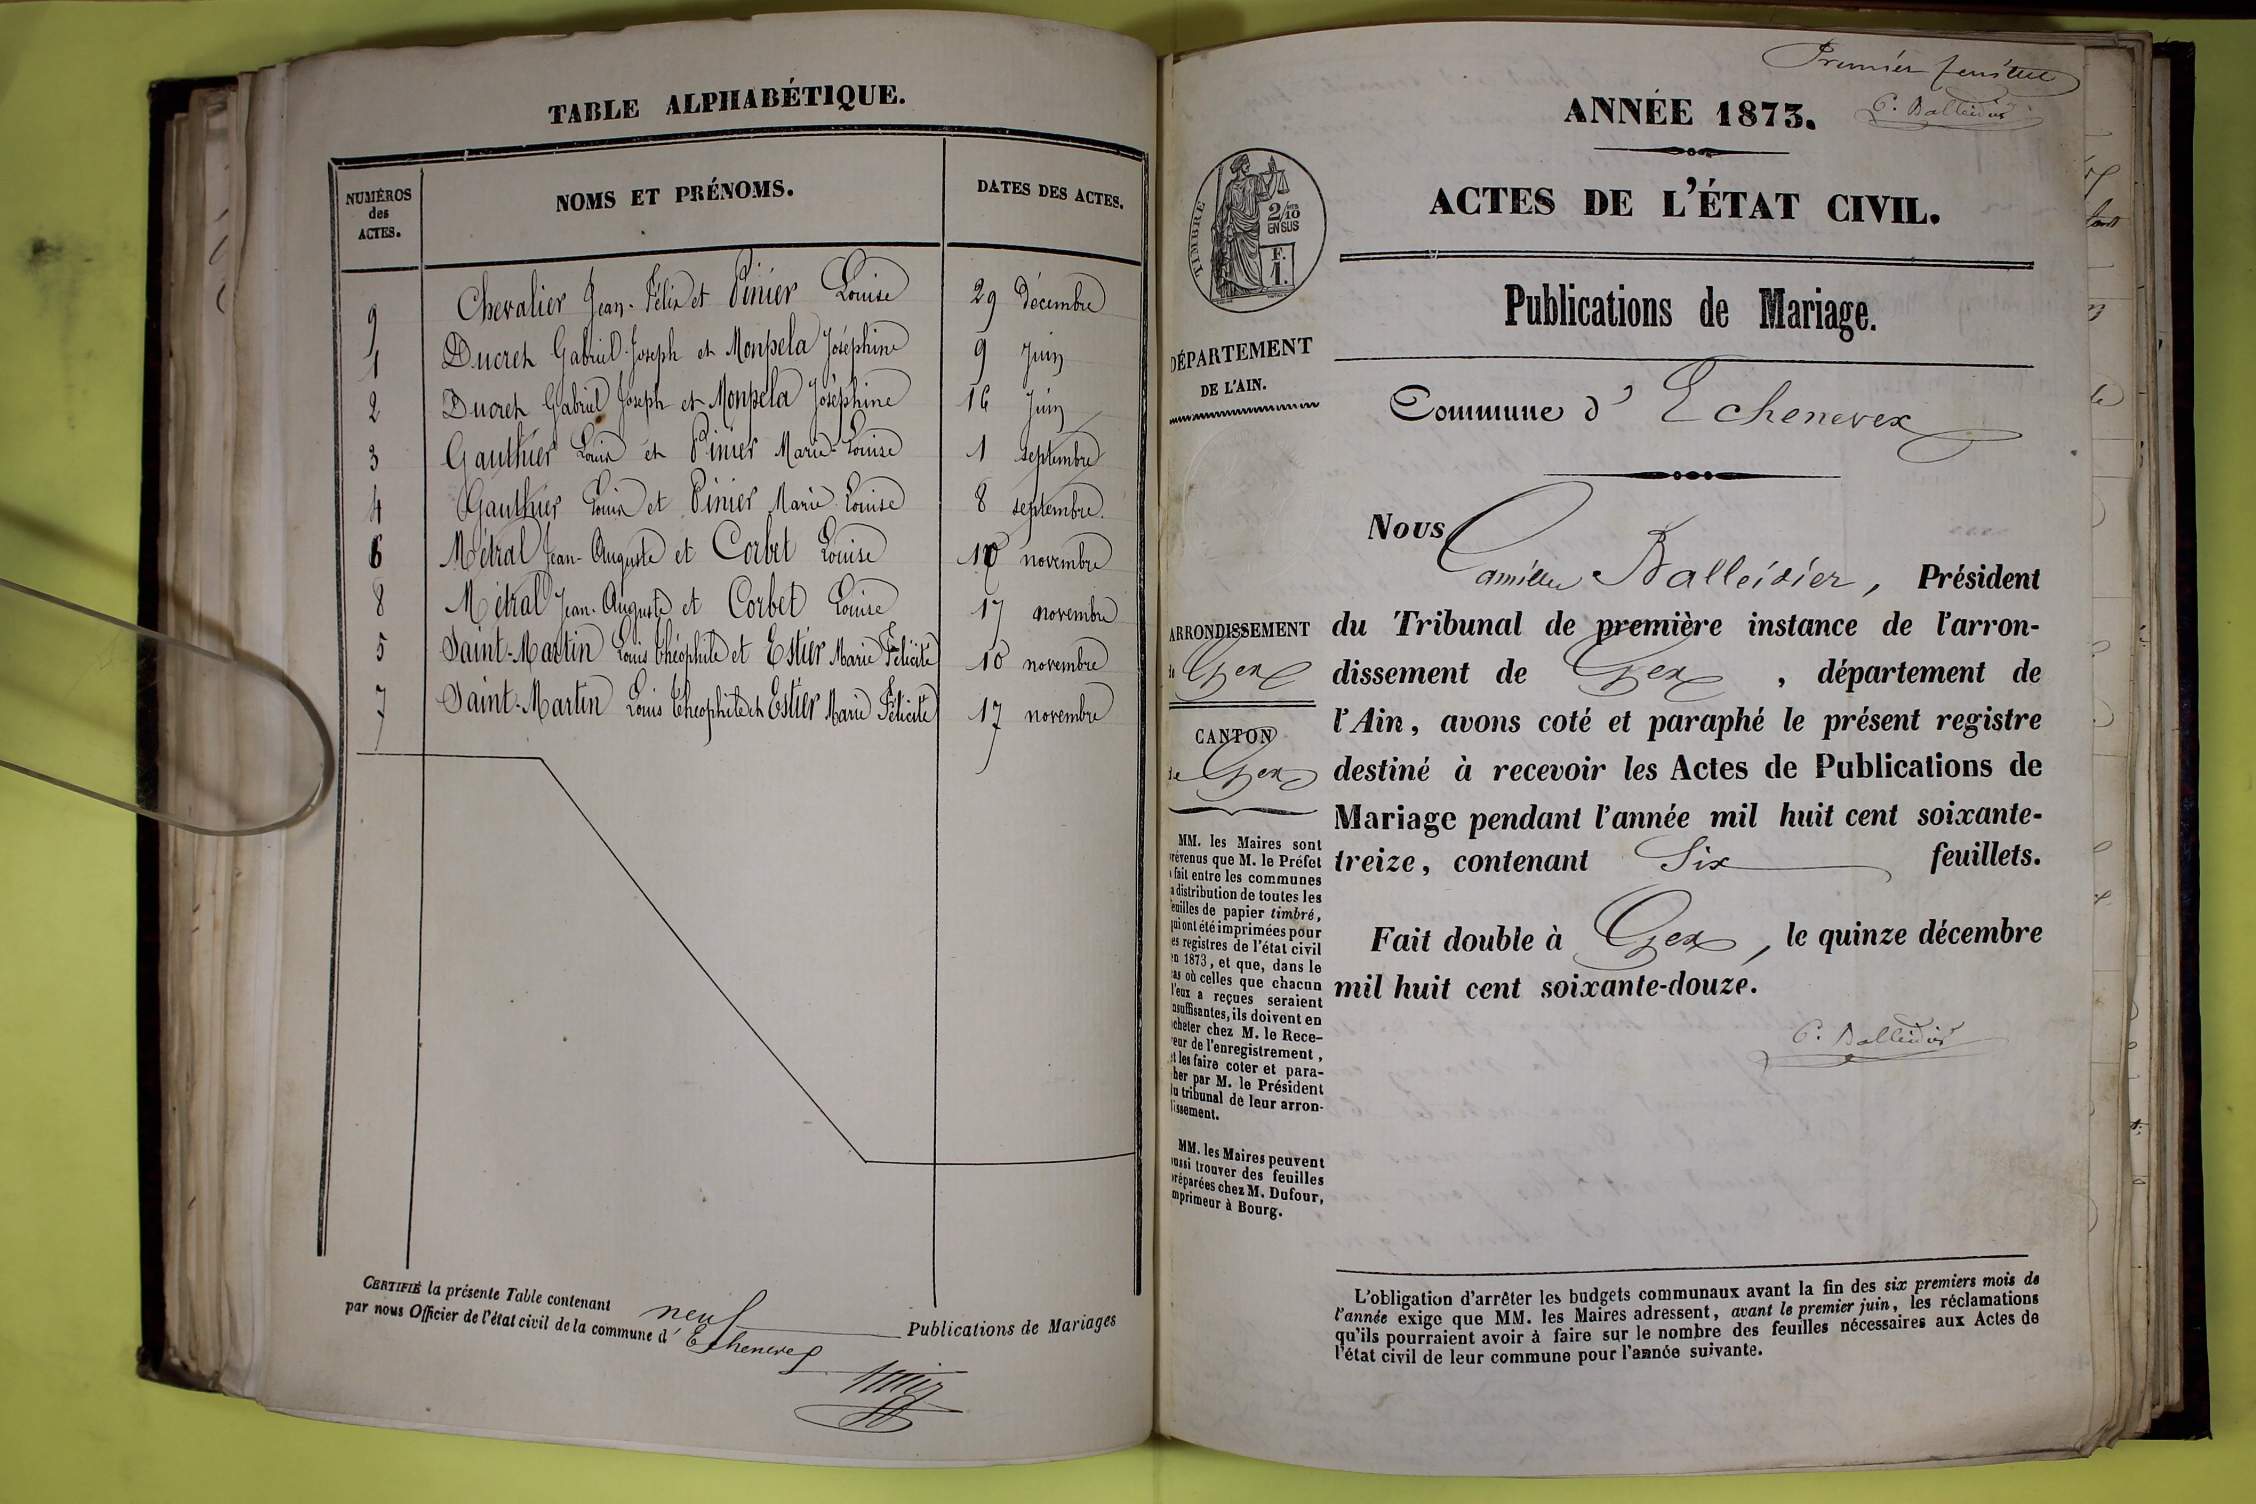 TABLE ALPHABÉTIQUE.
NUMÉROS
des
ACTES.
NOMS ET PRÉNOMS.
DATES DES ACTES.
9 Chevalier Jean-Félix et Pinier Louise 29 Décembre
1 Ducret Gabriel Joseph et Monpela Joséphine 9 Juin
2 Ducret Gabriel Joseph et Monpela Joséphine 16 Juin
3 Gauthier Louis et Pinier Marie-Louise 1 septembre
4 Gauthier Louis et Pinier Marie Louise 8 septembre.
6 Métral Jean-Auguste et Corbet Louise 10 novembre
8 Métral Jean-Auguste et Corbet Louise 17 novembre
5 Saint-Martin Louis Théophile et Estier Marie Félicité 10 novembre
7 Saint-Martin Louis Théophile et Estier Marie Félicité 17 novembre
CERTIFIÉ la présente Table contenant neuf Publications de Mariages
par nous Officier de l'état civil de la commune d' Echenevex
Premier feuillet
C. Balleidier
ANNÉE 1873.
ACTES DE L'ÉTAT CIVIL.
TIMBRE
2/10
EN SUS
F.
1.
Publications de Mariage.
DÉPARTEMENT
DE L'AIN.
Commune d' Echenevex
Nous Camille Balleidier, Président
du Tribunal de première instance de l'arron-
dissement de Gex, département de
l'Ain, avons coté et paraphé le présent registre
destiné à recevoir les Actes de Publications de
Mariage pendant l'année mil huit cent soixante-
treize, contenant Six feuillets.
Fait double à Gex, le quinze décembre
mil huit cent soixante-douze.
C. Balleidier
ARRONDISSEMENT
de Gex
CANTON
de Gex
MM. les Maires sont
prévenus que M. le Préfet
a fait entre les communes
la distribution de toutes les
feuilles de papier timbré,
qui ont été imprimées pour
les registres de l'état civil
en 1873, et que, dans le
cas où celles que chacun
d'eux a reçues seraient
insuffisantes, ils doivent en
acheter chez M. le Rece-
veur de l'enregistrement,
et les faire coter et para-
pher par M. le Président
du tribunal de leur arron-
dissement.
MM. les Maires peuvent
aussi trouver des feuilles
préparées chez M. Dufour,
imprimeur à Bourg.
L'obligation d'arrêter les budgets communaux avant la fin des six premiers mois de
l'année exige que MM. les Maires adressent, avant le premier juin, les réclamations
qu'ils pourraient avoir à faire sur le nombre des feuilles nécessaires aux Actes de
l'état civil de leur commune pour l'année suivante.